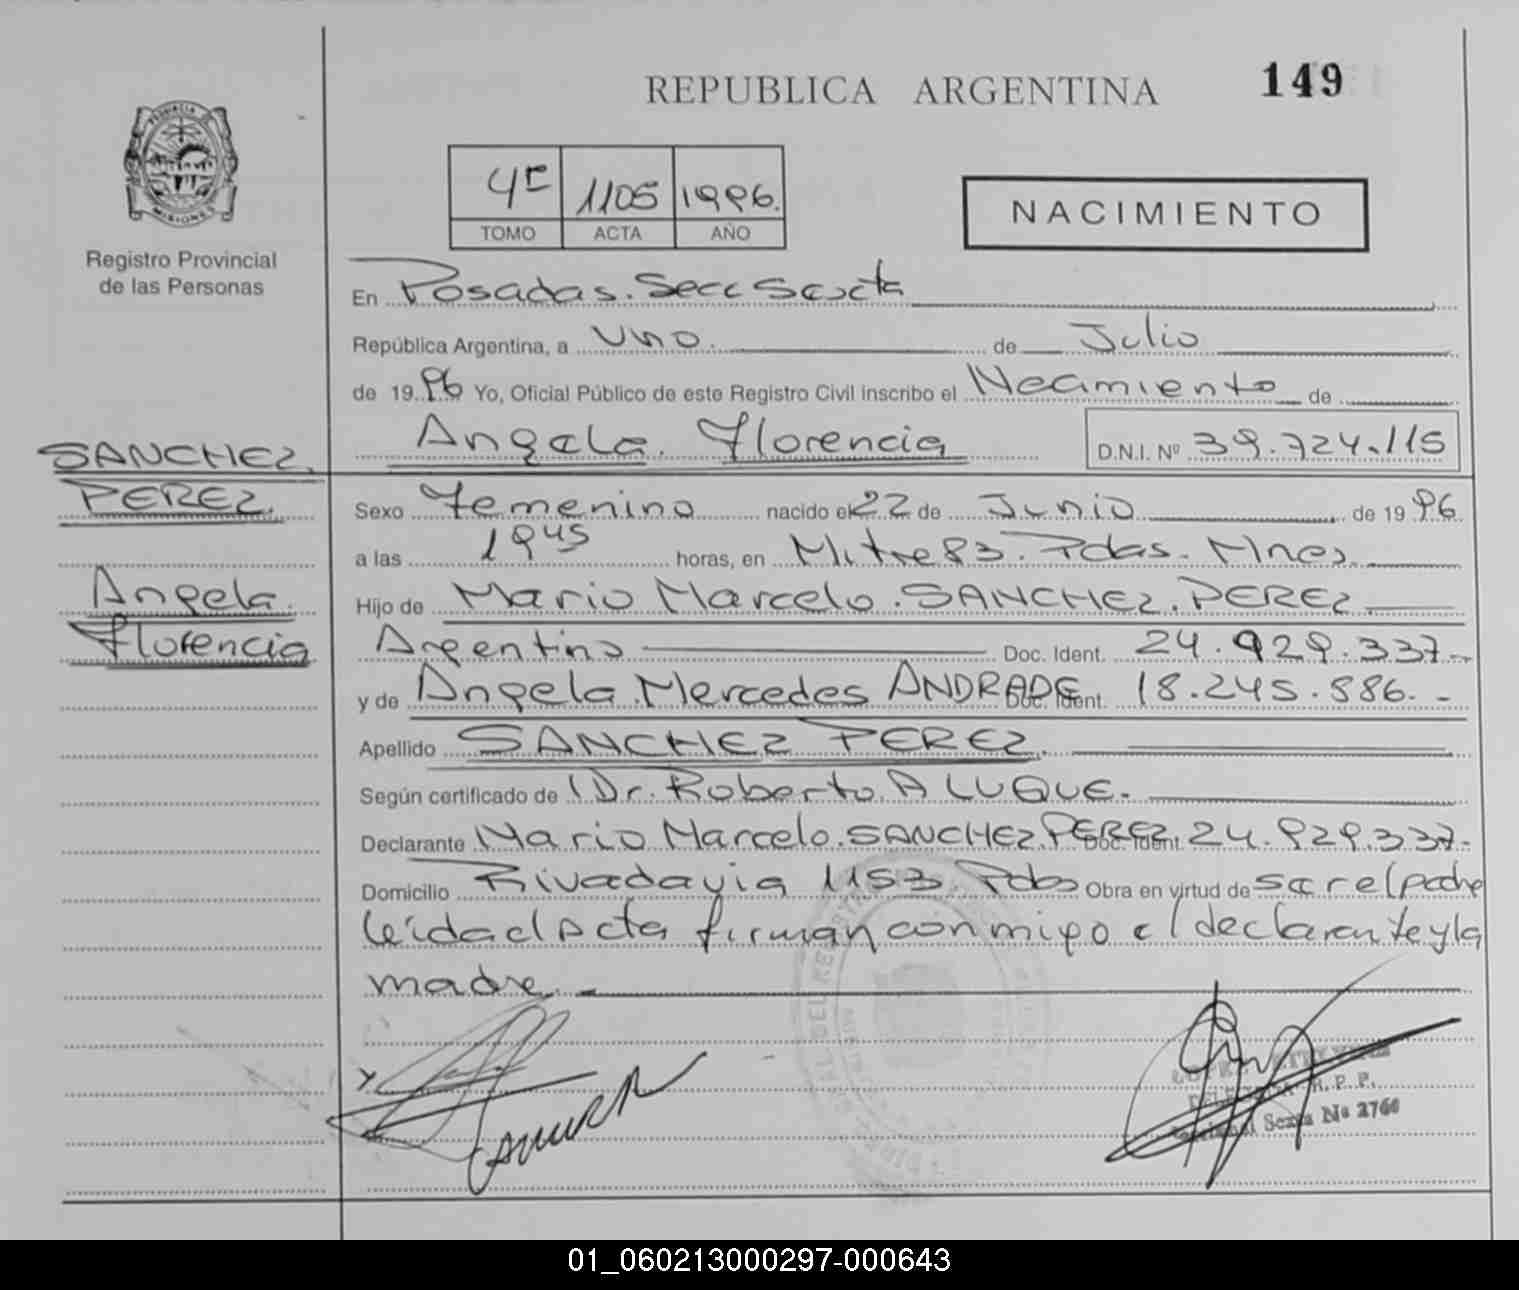 REPUBLICA ARGENTINA 149
PROVINCIA DE
MISIONES
Registro Provincial
de las Personas
4º 1105 1996.
TOMO ACTA AÑO
NACIMIENTO
En Posadas. Secc Sexta
República Argentina, a uno. de Julio
de 1996 Yo, Oficial Público de este Registro Civil inscribo el Nacimiento de
Angela. Florencia D.N.I. Nº 39.724.115
SANCHEZ.
PEREZ.
Angela.
Florencia
Sexo Femenino nacido el 22 de Junio de 1996
a las 1945 horas, en Mitre 83. Pdas. Mnes.
Hijo de Mario Marcelo. SANCHEZ. PEREZ
Argentino Doc. Ident. 24.929.337.-
y de Angela. Mercedes ANDRADE Doc. Ident. 18.245.886.-
Apellido SANCHEZ PEREZ.
Según certificado de Dr. Roberto. A LUQUE.
Declarante Mario Marcelo. SANCHEZ. PEREZ. Doc. Ident. 24.929.337.-
Domicilio Rivadavia 1153 Pdas Obra en virtud de ser el padre
leída el Acta firman conmigo el declarante y la
madre.
R. P. P.
Sexta Nº 2760
01_060213000297-000643